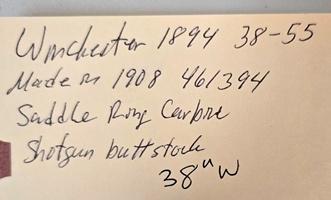 Winchester 1894 38-55
Made in 1908 461394
Saddle Ring Carbine
Shotgun buttstock
38" W